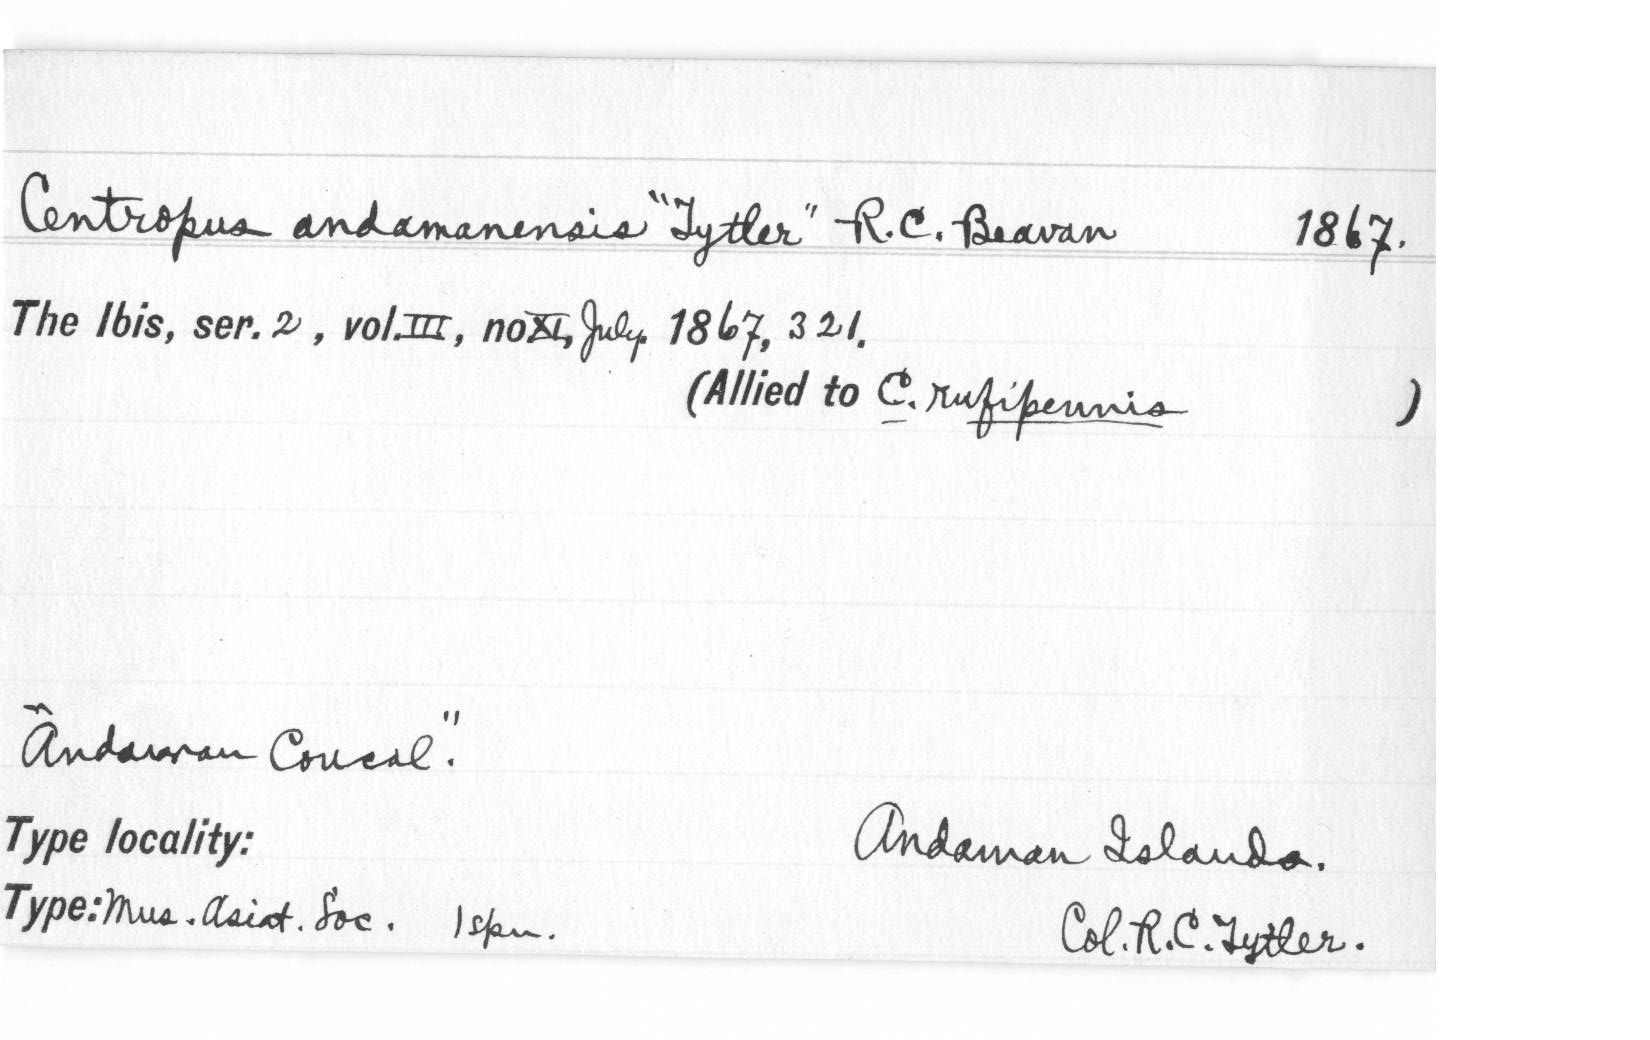 Centropus andamanensis "Tytler" R.C. Beavan 1867.
The Ibis, ser. 2, vol. III, no XI, July. 1867, 321.
(Allied to C. rufipennis )
"Andaman Coucal".
Type locality: Andaman Islands.
Type: Mus. Asiat. Soc. 1 spn. Col. R.C. Tytler.